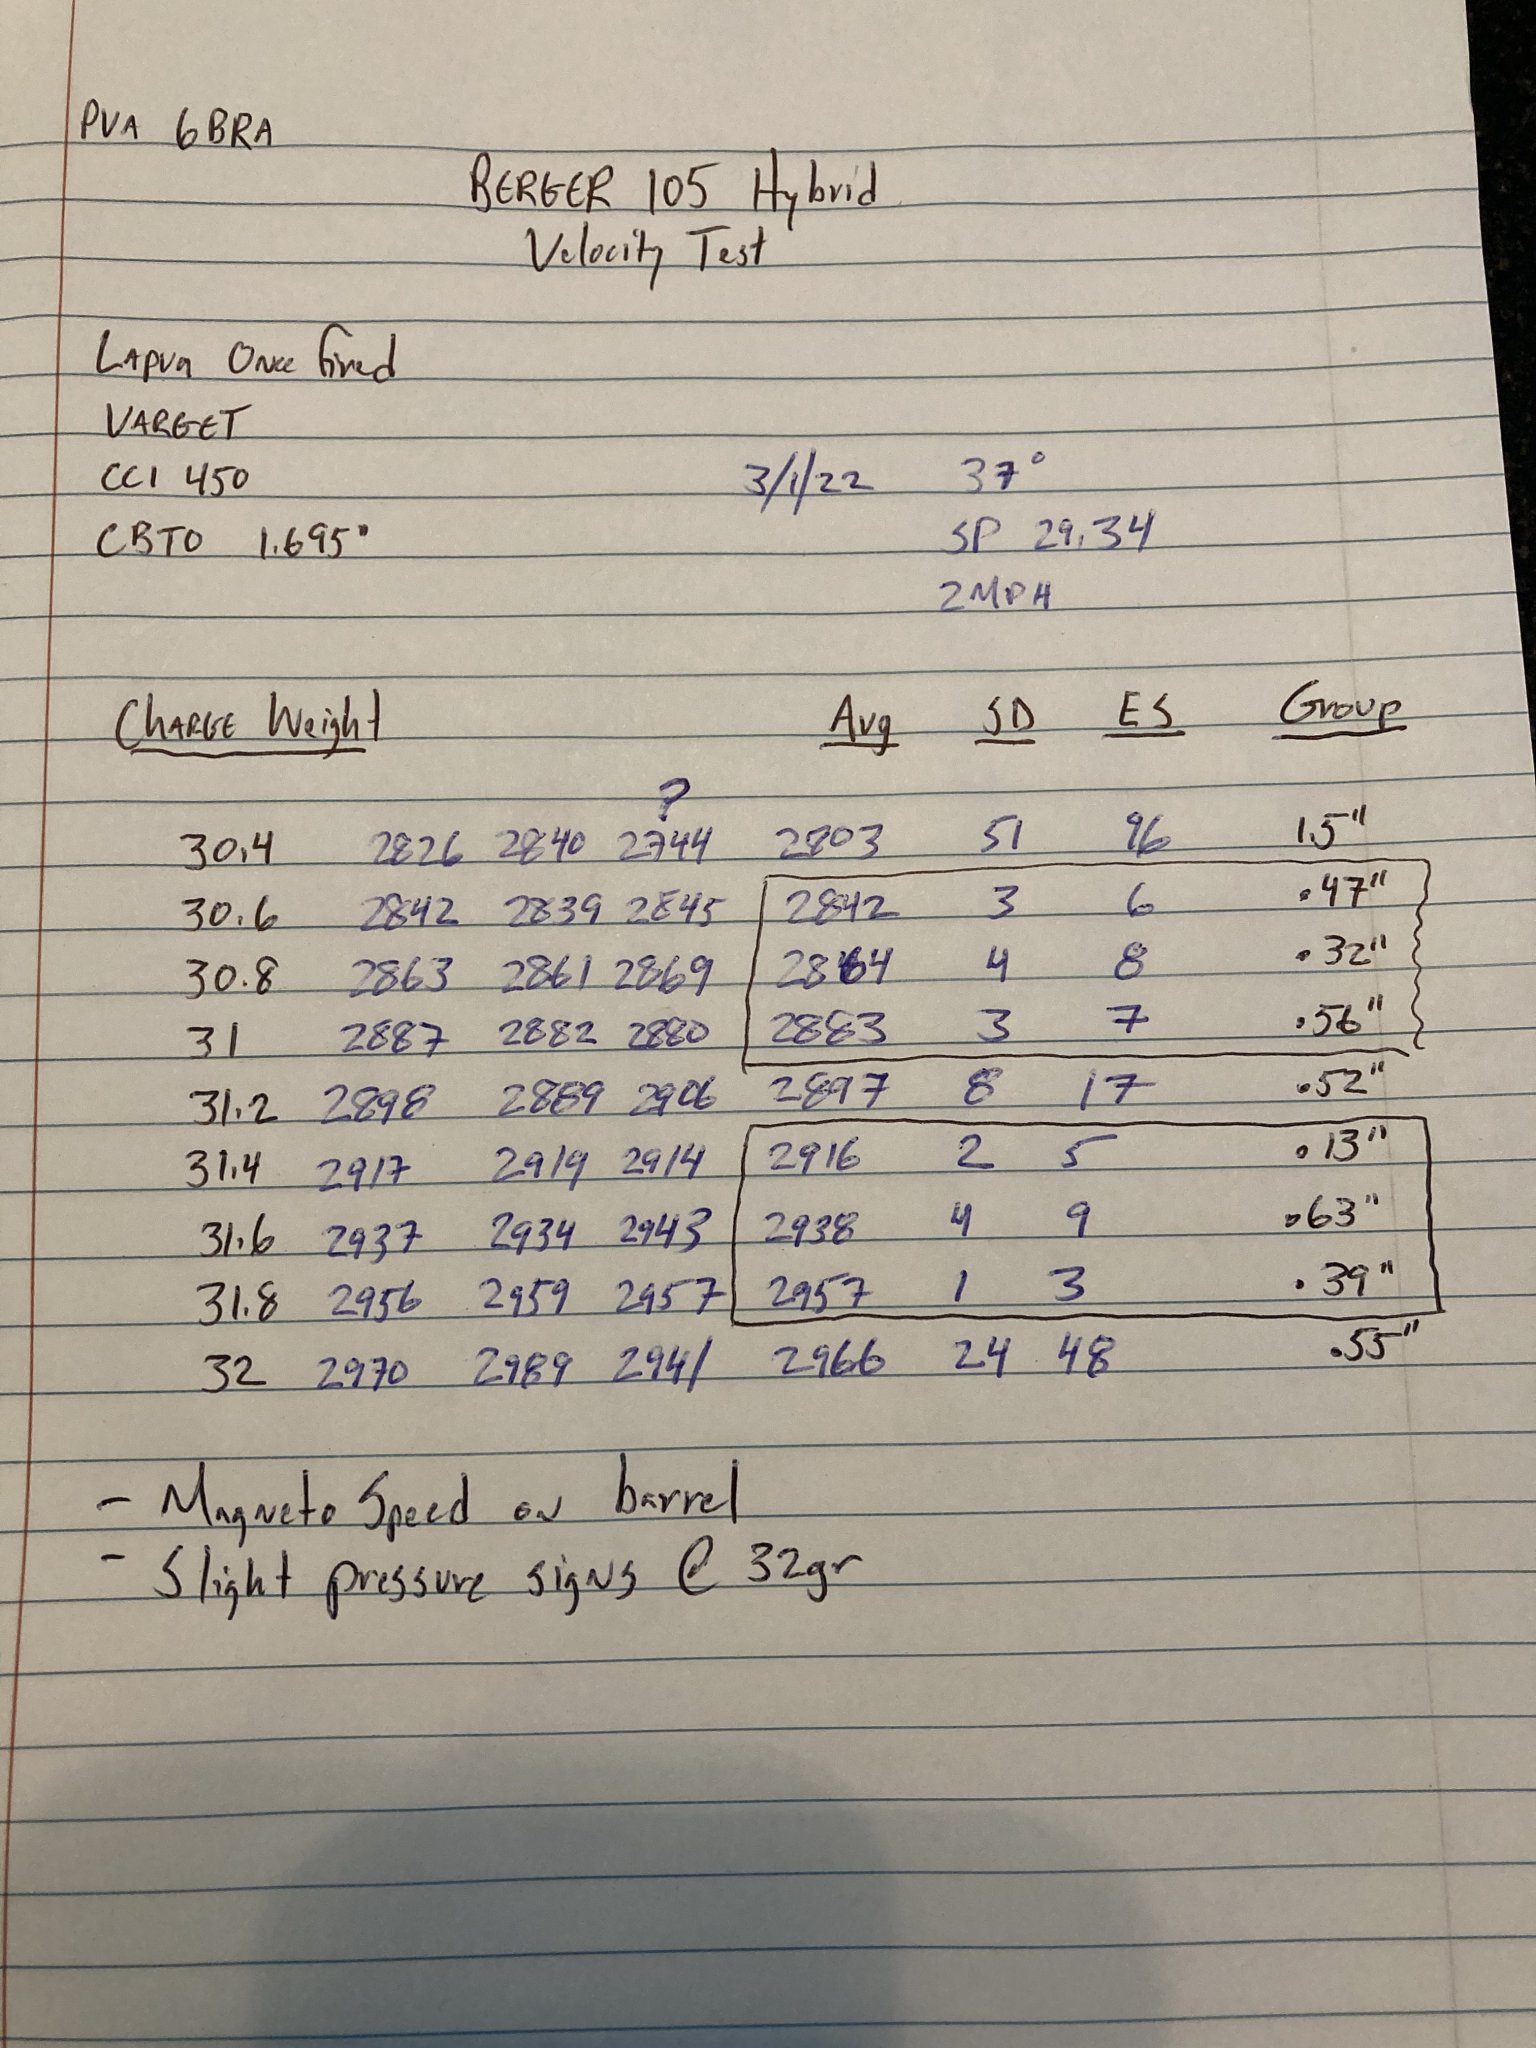 PVA 6BRA
BERGER 105 Hybrid
Velocity Test
LAPUA ONCE fired
VARGET
CCI 450 3/1/22 37°
CBTO 1.695" SP 29.34
2MPH
CHARGE Weight Avg SD ES Group
?
30.4 2826 2840 2744 2803 51 96 1.5"
30.6 2842 2839 2845 2842 3 6 .47"
30.8 2863 2861 2869 2864 4 8 .32"
31 2887 2882 2880 2883 3 7 .56"
31.2 2898 2889 2906 2897 8 17 .52"
31.4 2917 2919 2914 2916 2 5 .13"
31.6 2937 2934 2943 2938 4 9 .63"
31.8 2956 2959 2957 2957 1 3 .39"
32 2970 2989 2941 2966 24 48 .55"
- Magneto Speed on barrel
- Slight pressure signs @ 32gr